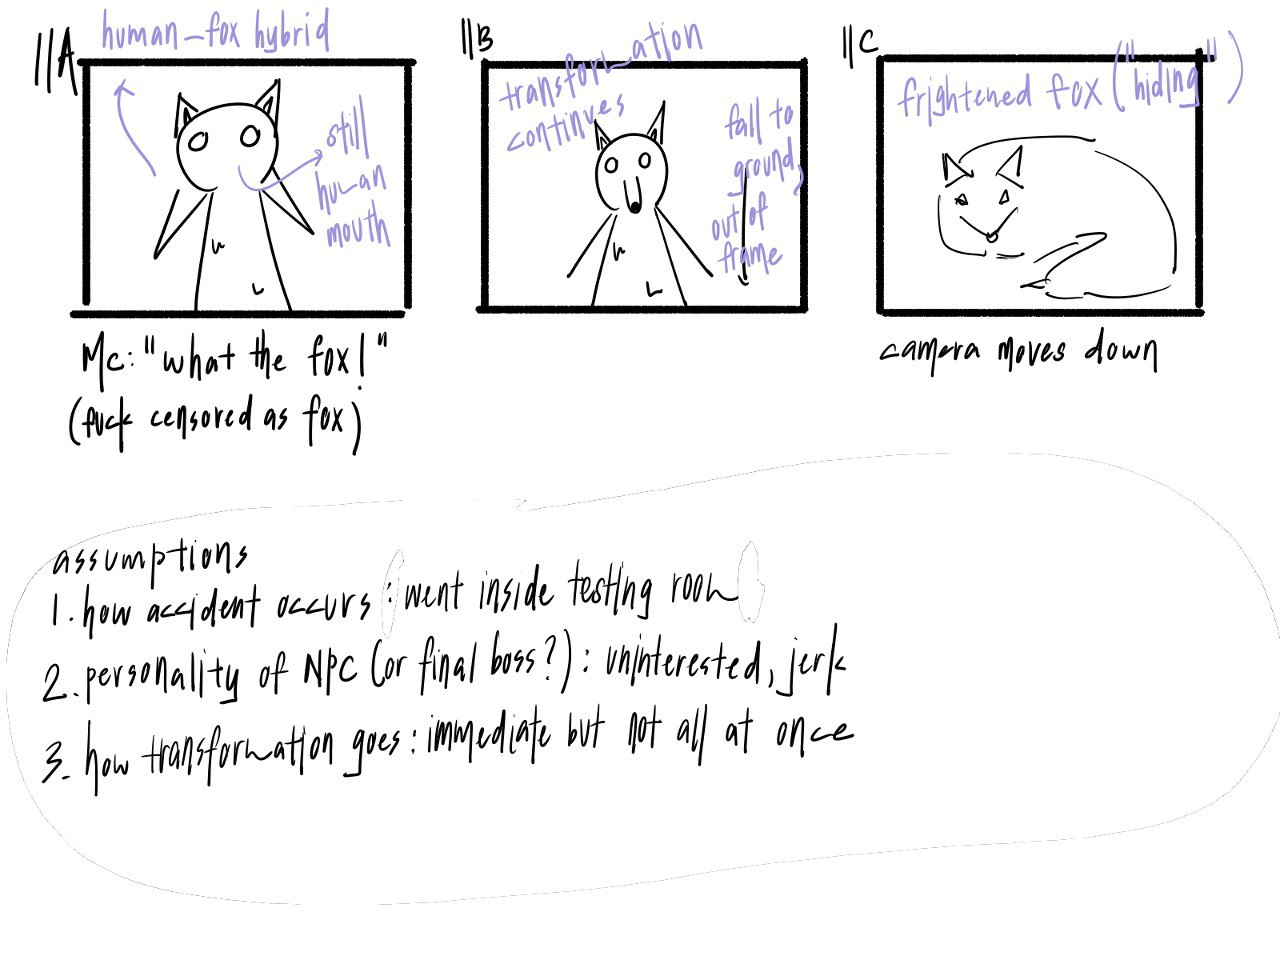 11A
human-fox hybrid
still
human
mouth
Mc: "what the fox!"
(fuck censored as fox)
11B
transformation
continues
fall to
ground,
out of
frame
11C
frightened fox ("hiding")
camera moves down
assumptions
1. how accident occurs : went inside testing room
2. personality of NPC (or final boss?) : uninterested, jerk
3. how transformation goes : immediate but not all at once